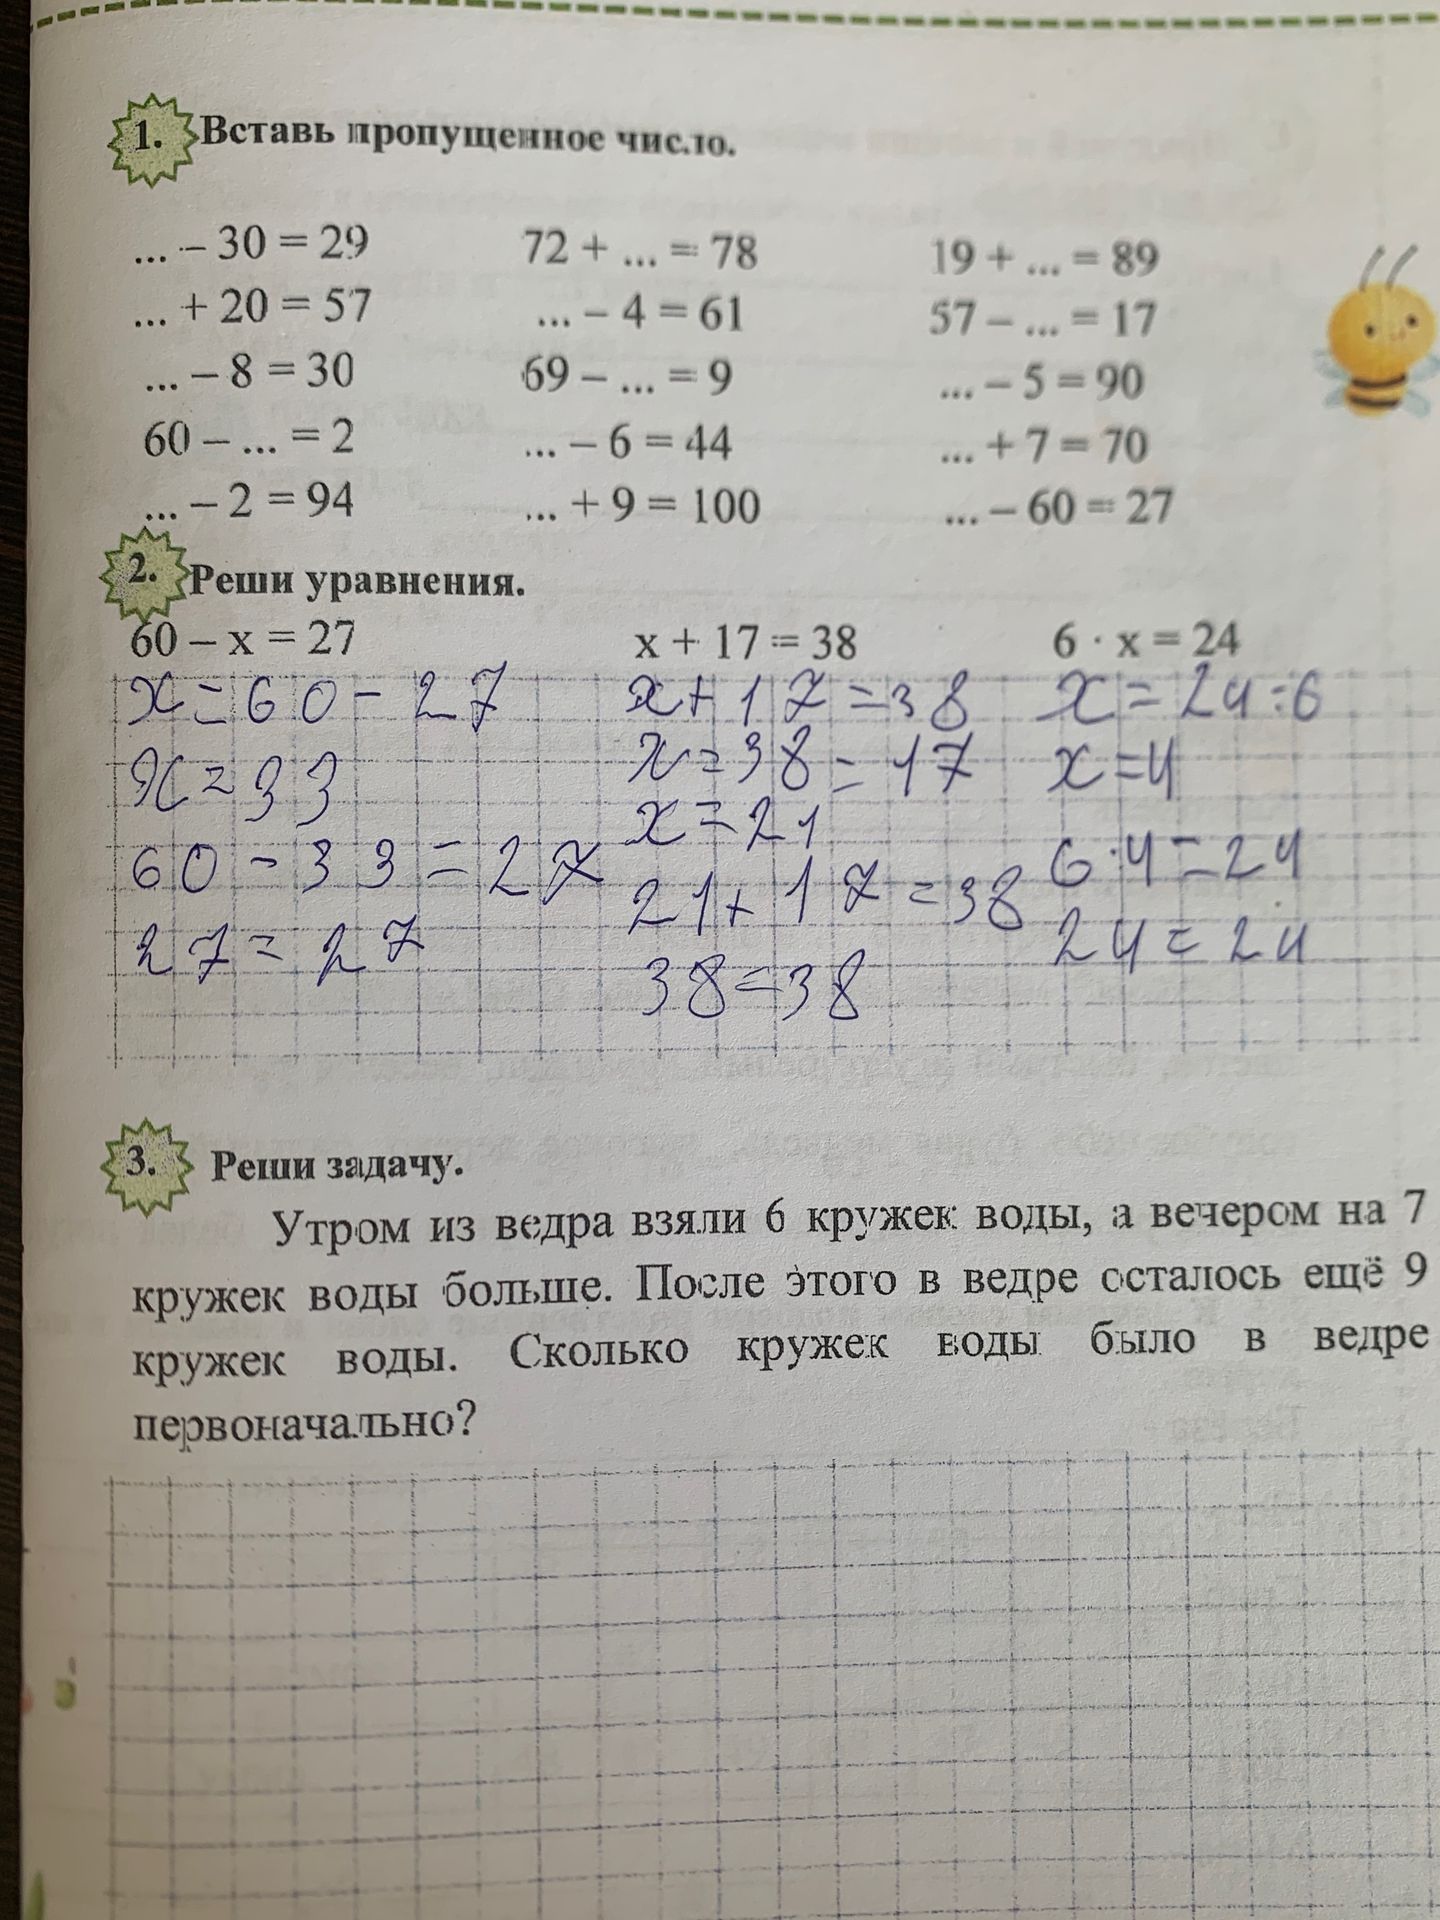 1. Вставь пропущенное число.
... – 30 = 29 72 + ... = 78 19 + ... = 89
... + 20 = 57 ... – 4 = 61 57 – ... = 17
... – 8 = 30 69 – ... = 9 ... – 5 = 90
60 – ... = 2 ... – 6 = 44 ... + 7 = 70
... – 2 = 94 ... + 9 = 100 ... – 60 = 27
2. Реши уравнения.
60 – х = 27 х + 17 = 38 6 · х = 24
х = 60 - 27 х + 17 = 38 х = 24 : 6
х = 33 х = 38 = 17 х = 4
х = 21
60 - 33 = 27 21 + 17 = 38 6 · 4 = 24
27 = 27 38 = 38 24 = 24
3. Реши задачу.
Утром из ведра взяли 6 кружек воды, а вечером на 7
кружек воды больше. После этого в ведре осталось ещё 9
кружек воды. Сколько кружек воды было в ведре
первоначально?